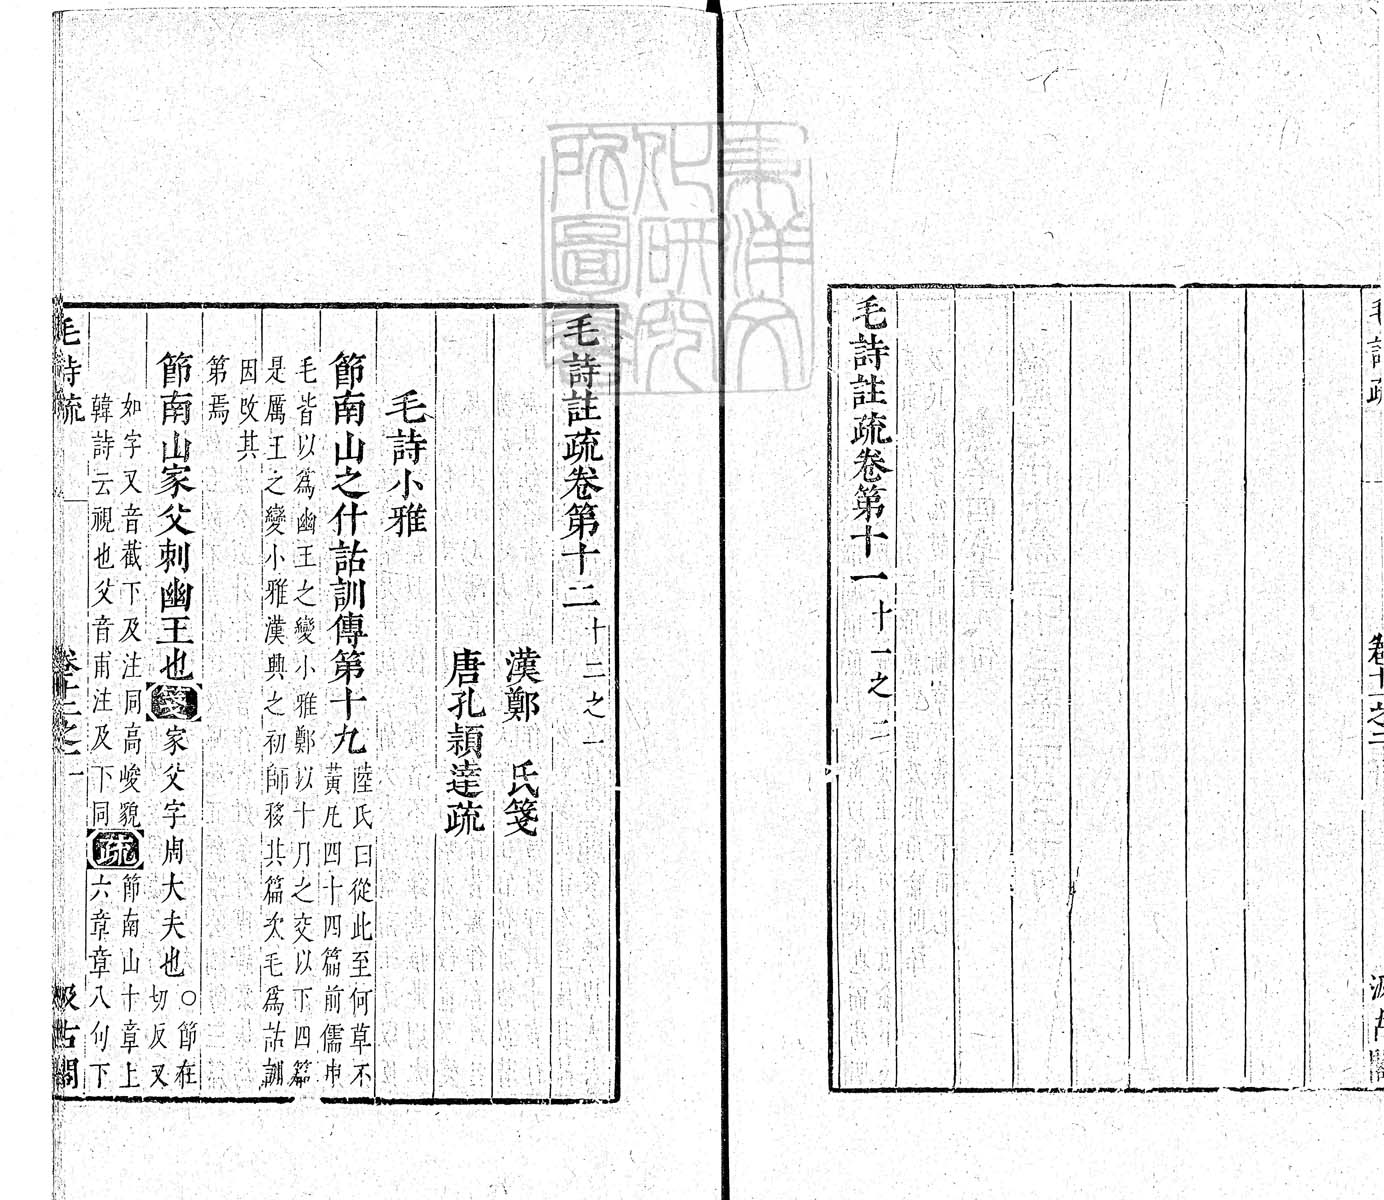 毛詩疏　卷十一之二　汲古閣
毛詩註疏卷第十一　十一之二
東洋文
化研究
所圖書
毛詩註疏卷第十二　十二之一
漢鄭　氏箋
唐孔穎達疏
毛詩小雅
節南山之什詁訓傳第十九　陸氏曰從此至何草不
黃凡四十四篇前儒申
毛皆以爲幽王之變小雅鄭以十月之交以下四篇
是厲王之變小雅漢興之初師移其篇次毛爲詁訓
因改其
第焉
節南山家父刺幽王也箋家父字周大夫也○節在
切反又
如字又音截下及注同高峻貌疏節南山十章上
韓詩云視也父音甫注及下同　六章章八句下
毛詩疏　卷十二之一　一　汲古閣